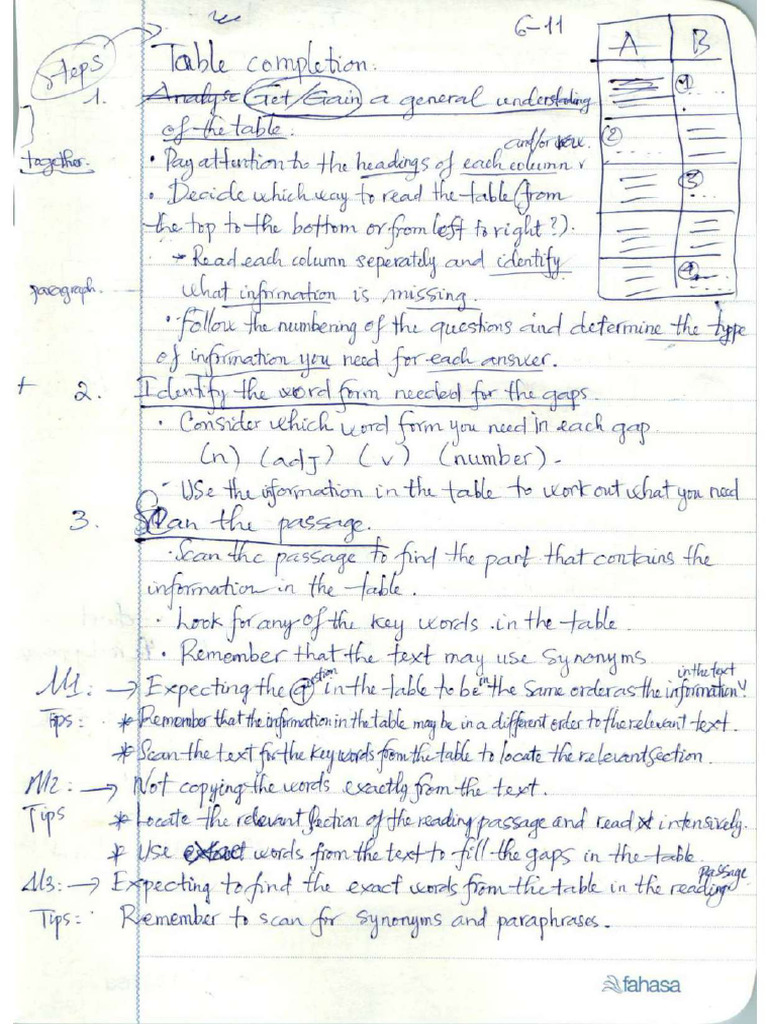 6-11
Steps
Table completion.
A B
1. Analyse Get/Gain a general understanding
of the table.
together.
and/or row.
• Pay attention to the headings of each column
• Decide which way to read the table (from
the top to the bottom or from left to right?).
- Read each column seperately and identify
paragraph.
what information is missing.
• Follow the numbering of the questions and determine the type
of information you need for each answer.
+ 2. Identify the word form needed for the gaps.
• Consider which word form you need in each gap
(n) (adj) (v) (number).
- Use the information in the table to work out what you need
3. Scan the passage.
• Scan the passage to find the part that contains the
information in the table.
• Look for any of the key words in the table.
• Remember that the text may use synonyms
in the text
M1: → Expecting the question in the table to be in the same order as the information
Tips: * Remember that the information in the table may be in a different order to the relevant text.
* Scan the text for the key words from the table to locate the relevant section.
M2: → Not copying the words exactly from the text.
Tips * Locate the relevant section of the reading passage and read it intensively.
* Use exact words from the text to fill the gaps in the table.
M3: → Expecting to find the exact words from the table in the reading passage
Tips: Remember to scan for synonyms and paraphrases.
1
2
3
4
fahasa